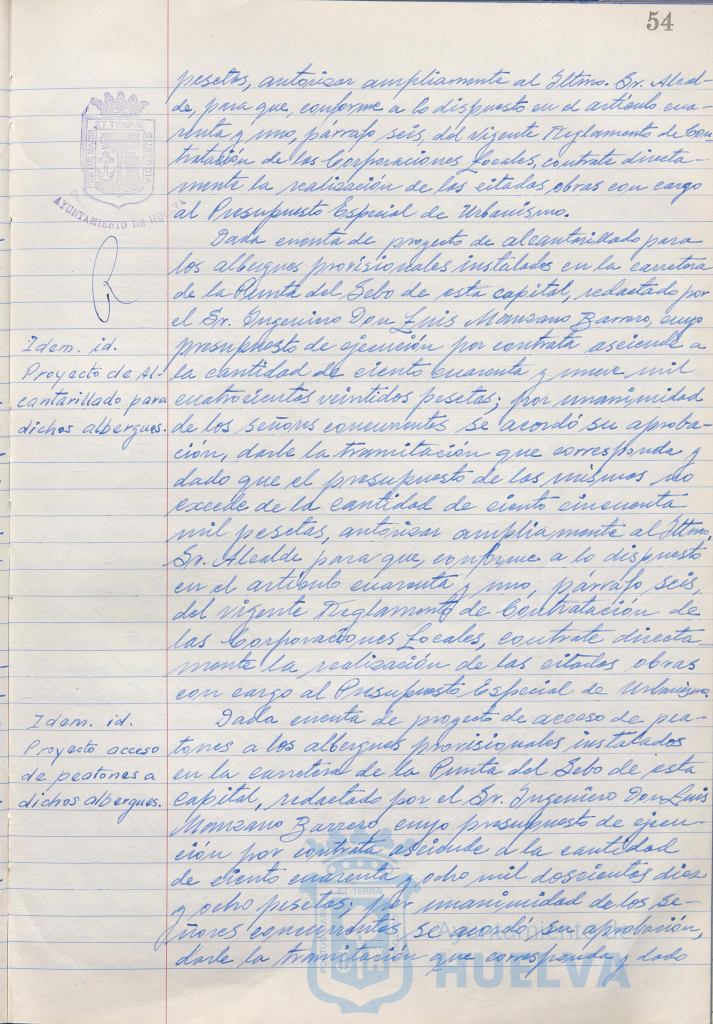 54
pesetas, autorizar ampliamente al Iltmo. Sr. Alcal-
de, para que, conforme a lo dispuesto en el artículo cua-
renta y uno, párrafo seis, del vigente Reglamento de Con-
tratación de las Corporaciones Locales, contrate directa-
mente la realización de las citadas obras con cargo
al Presupuesto Especial de Urbanismo.
AYUNTAMIENTO DE HUELVA
Idem. id.
Proyecto de Al-
cantarillado para
dichos albergues.
Dada cuenta de proyecto de alcantarillado para
los albergues provisionales instalados en la carretera
de la Punta del Sebo de esta capital, redactado por
el Sr. Ingeniero Don Luis Manzano Barrero, cuyo
presupuesto de ejecución por contrata asciende a
la cantidad de ciento cuarenta y nueve mil
cuatrocientos veintidos pesetas; por unanimidad
de los señores concurrentes se acordó su aproba-
ción, darle la tramitación que corresponda y
dado que el presupuesto de las mismas no
excede de la cantidad de ciento cincuenta
mil pesetas, autorizar ampliamente al Iltmo.
Sr. Alcalde para que, conforme a lo dispuesto
en el artículo cuarenta y uno, párrafo seis,
del vigente Reglamento de Contratación de
las Corporaciones Locales, contrate directa-
mente la realización de las citadas obras
con cargo al Presupuesto Especial de Urbanismo.
Idem. id.
Proyecto acceso
de peatones a
dichos albergues.
Dada cuenta de proyecto de acceso de pea-
tones a los albergues provisionales instalados
en la carretera de la Punta del Sebo de esta
capital, redactado por el Sr. Ingeniero Don Luis
Manzano Barrero, cuyo presupuesto de ejecu-
ción por contrata asciende a la cantidad
de ciento cuarenta y ocho mil doscientos diez
y ocho pesetas; por unanimidad de los se-
ñores concurrentes se acordó su aprobación,
darle la tramitación que corresponda y dado
Ayuntamiento de
HUELVA